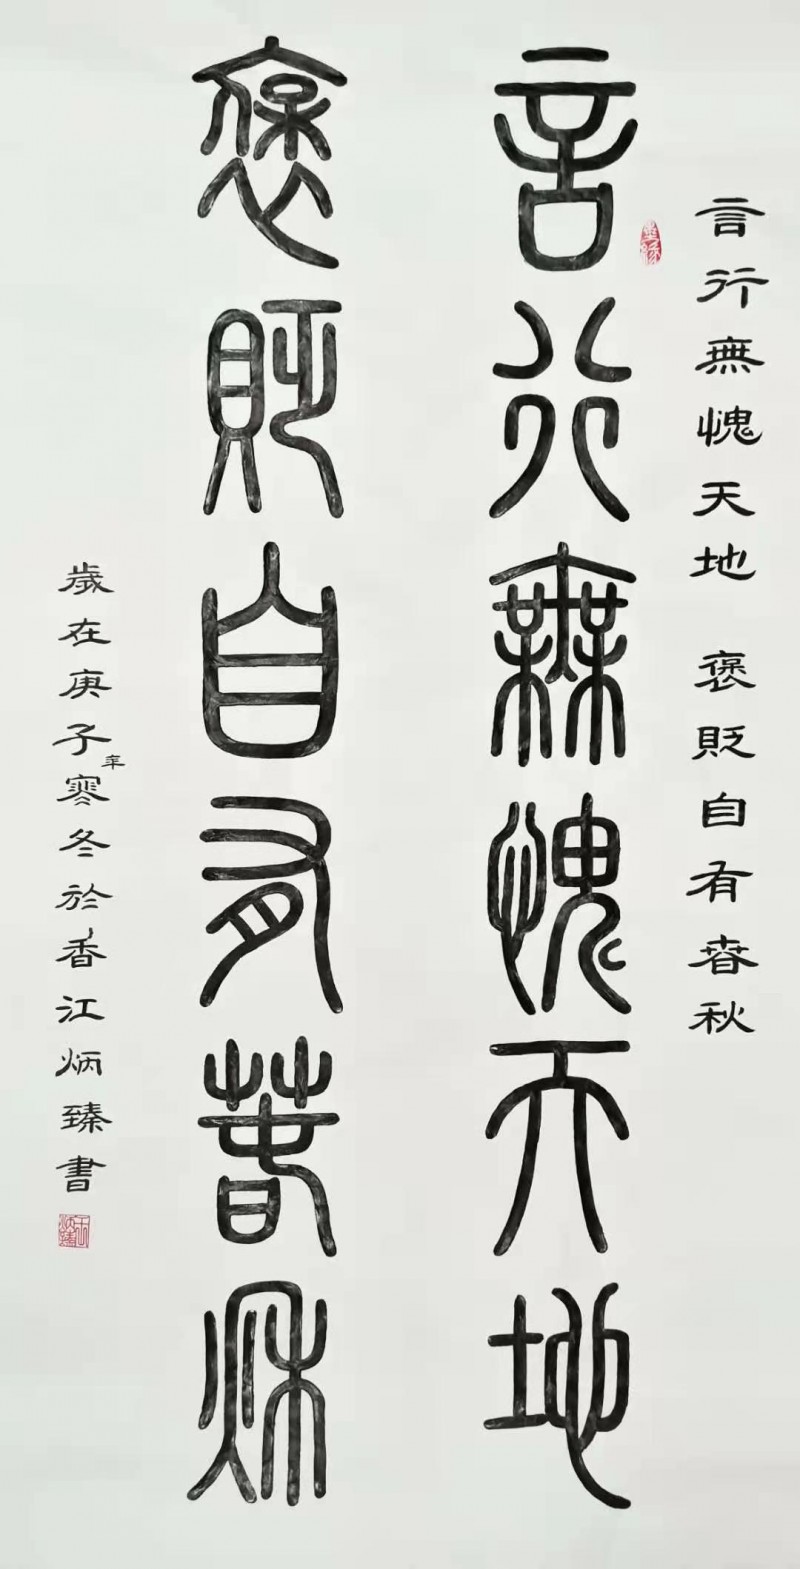 言行無愧天地 褒貶自有春秋
言行無愧天地
褒貶自有春秋
歲在庚子年寒冬於香江炳臻書